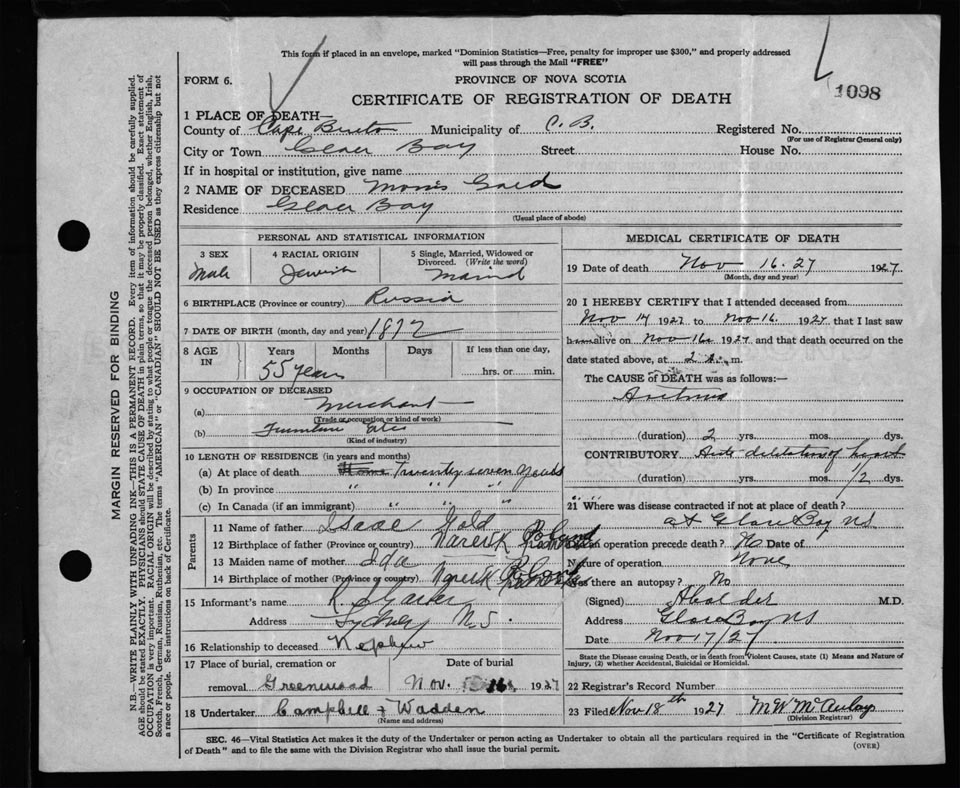 This form if placed in an envelope, marked "Dominion Statistics—Free, penalty for improper use $300," and properly addressed
will pass through the Mail "FREE"
FORM 6.
PROVINCE OF NOVA SCOTIA
CERTIFICATE OF REGISTRATION OF DEATH
1098
1 PLACE OF DEATH—
County of Cape Breton Municipality of C. B. Registered No.
(For use of Registrar General only)
City or Town Glace Bay Street House No.
If in hospital or institution, give name
2 NAME OF DECEASED Morris Gold
Residence Glace Bay
(Usual place of abode)
PERSONAL AND STATISTICAL INFORMATION
3 SEX 4 RACIAL ORIGIN 5 Single, Married, Widowed or
Divorced. (Write the word)
Male Jewish Married
6 BIRTHPLACE (Province or country) Russia
7 DATE OF BIRTH (month, day and year) 1872
8 AGE IN Years Months Days If less than one day,
55 years hrs. or min.
9 OCCUPATION OF DECEASED
(a) Merchant
(Trade or occupation or kind of work)
(b) Furniture etc
(Kind of industry)
10 LENGTH OF RESIDENCE (in years and months)
(a) At place of death Twenty seven years
(b) In province " " "
(c) In Canada (if an immigrant) " " "
Parents
11 Name of father Isaac Gold
12 Birthplace of father (Province or country)
13 Maiden name of mother Ida
14 Birthplace of mother (Province or country)
15 Informant's name
Address Sydney N.S.
16 Relationship to deceased Nephew
17 Place of burial, cremation or Date of burial
removal Greenwood Nov. 16 1927
18 Undertaker Campbell & Wadden
(Name and address)
MEDICAL CERTIFICATE OF DEATH
19 Date of death Nov 16.27 1927
(Month, day and year)
20 I HEREBY CERTIFY that I attended deceased from
Nov 14 1927 to Nov 16. 1927 that I last saw
him alive on Nov 16 1927 and that death occurred on the
date stated above, at 2 m.
The CAUSE of DEATH was as follows:—
Asthma
(duration) 2 yrs. mos. dys.
CONTRIBUTORY Acute dilatation of heart
(duration) yrs. mos. 1/2 dys.
21 Where was disease contracted if not at place of death?
at Glace Bay NS
Did an operation precede death? No Date of
Nature of operation None
Was there an autopsy? No
(Signed) M.D.
Address Glace Bay NS
Date Nov 17/27
State the Disease causing Death, or in death from Violent Causes, state (1) Means and Nature of
Injury, (2) whether Accidental, Suicidal or Homicidal.
22 Registrar's Record Number
23 Filed Nov 18th 1927 M W McAulay
(Division Registrar)
SEC. 46—Vital Statistics Act makes it the duty of the Undertaker or person acting as Undertaker to obtain all the particulars required in the "Certificate of Registration
of Death" and to file the same with the Division Registrar who shall issue the burial permit.
(OVER)
MARGIN RESERVED FOR BINDING
N.B.—WRITE PLAINLY WITH UNFADING INK—THIS IS A PERMANENT RECORD. Every item of information should be carefully supplied.
AGE should be stated EXACTLY. PHYSICIANS should STATE CAUSE OF DEATH in plain terms, so that it may be properly classified. Exact statement of
OCCUPATION is very important. RACIAL ORIGIN will be described by stating to what people or tongue the deceased person belonged, whether English, Irish,
Scotch, French, German, Russian, Ruthenian, etc. The terms "AMERICAN" or "CANADIAN" SHOULD NOT BE USED as they express citizenship but not
a race or people. See instructions on back of Certificate.